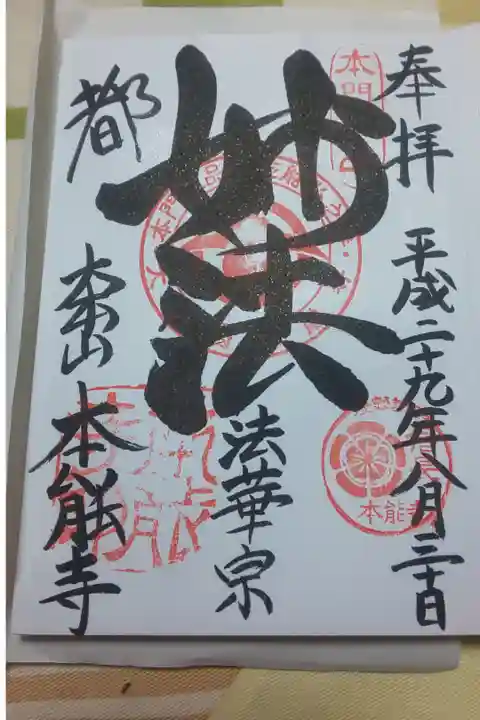 奉拝
平成二十九年八月三十日
妙法
法華宗
都
大本山
本能寺
本能寺